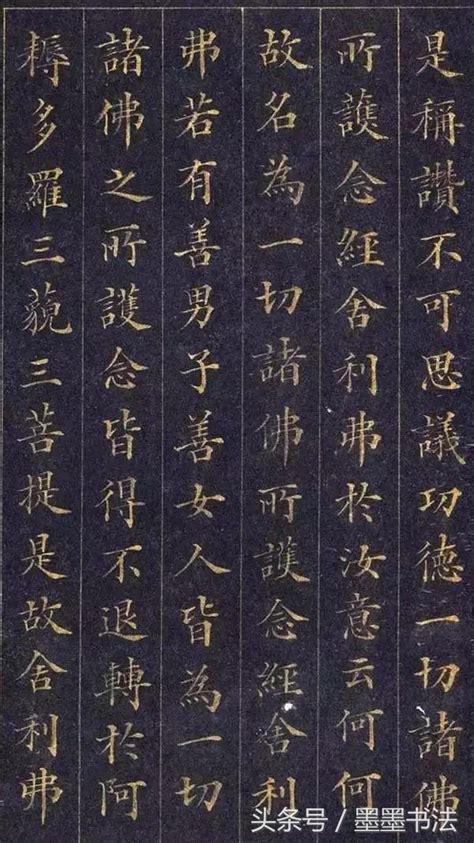 是稱讚不可思議功德一切諸佛
所護念經舍利弗於汝意云何何
故名為一切諸佛所護念經舍利
弗若有善男子善女人皆為一切
諸佛之所護念皆得不退轉於阿
耨多羅三藐三菩提是故舍利弗
头条号/墨墨书法